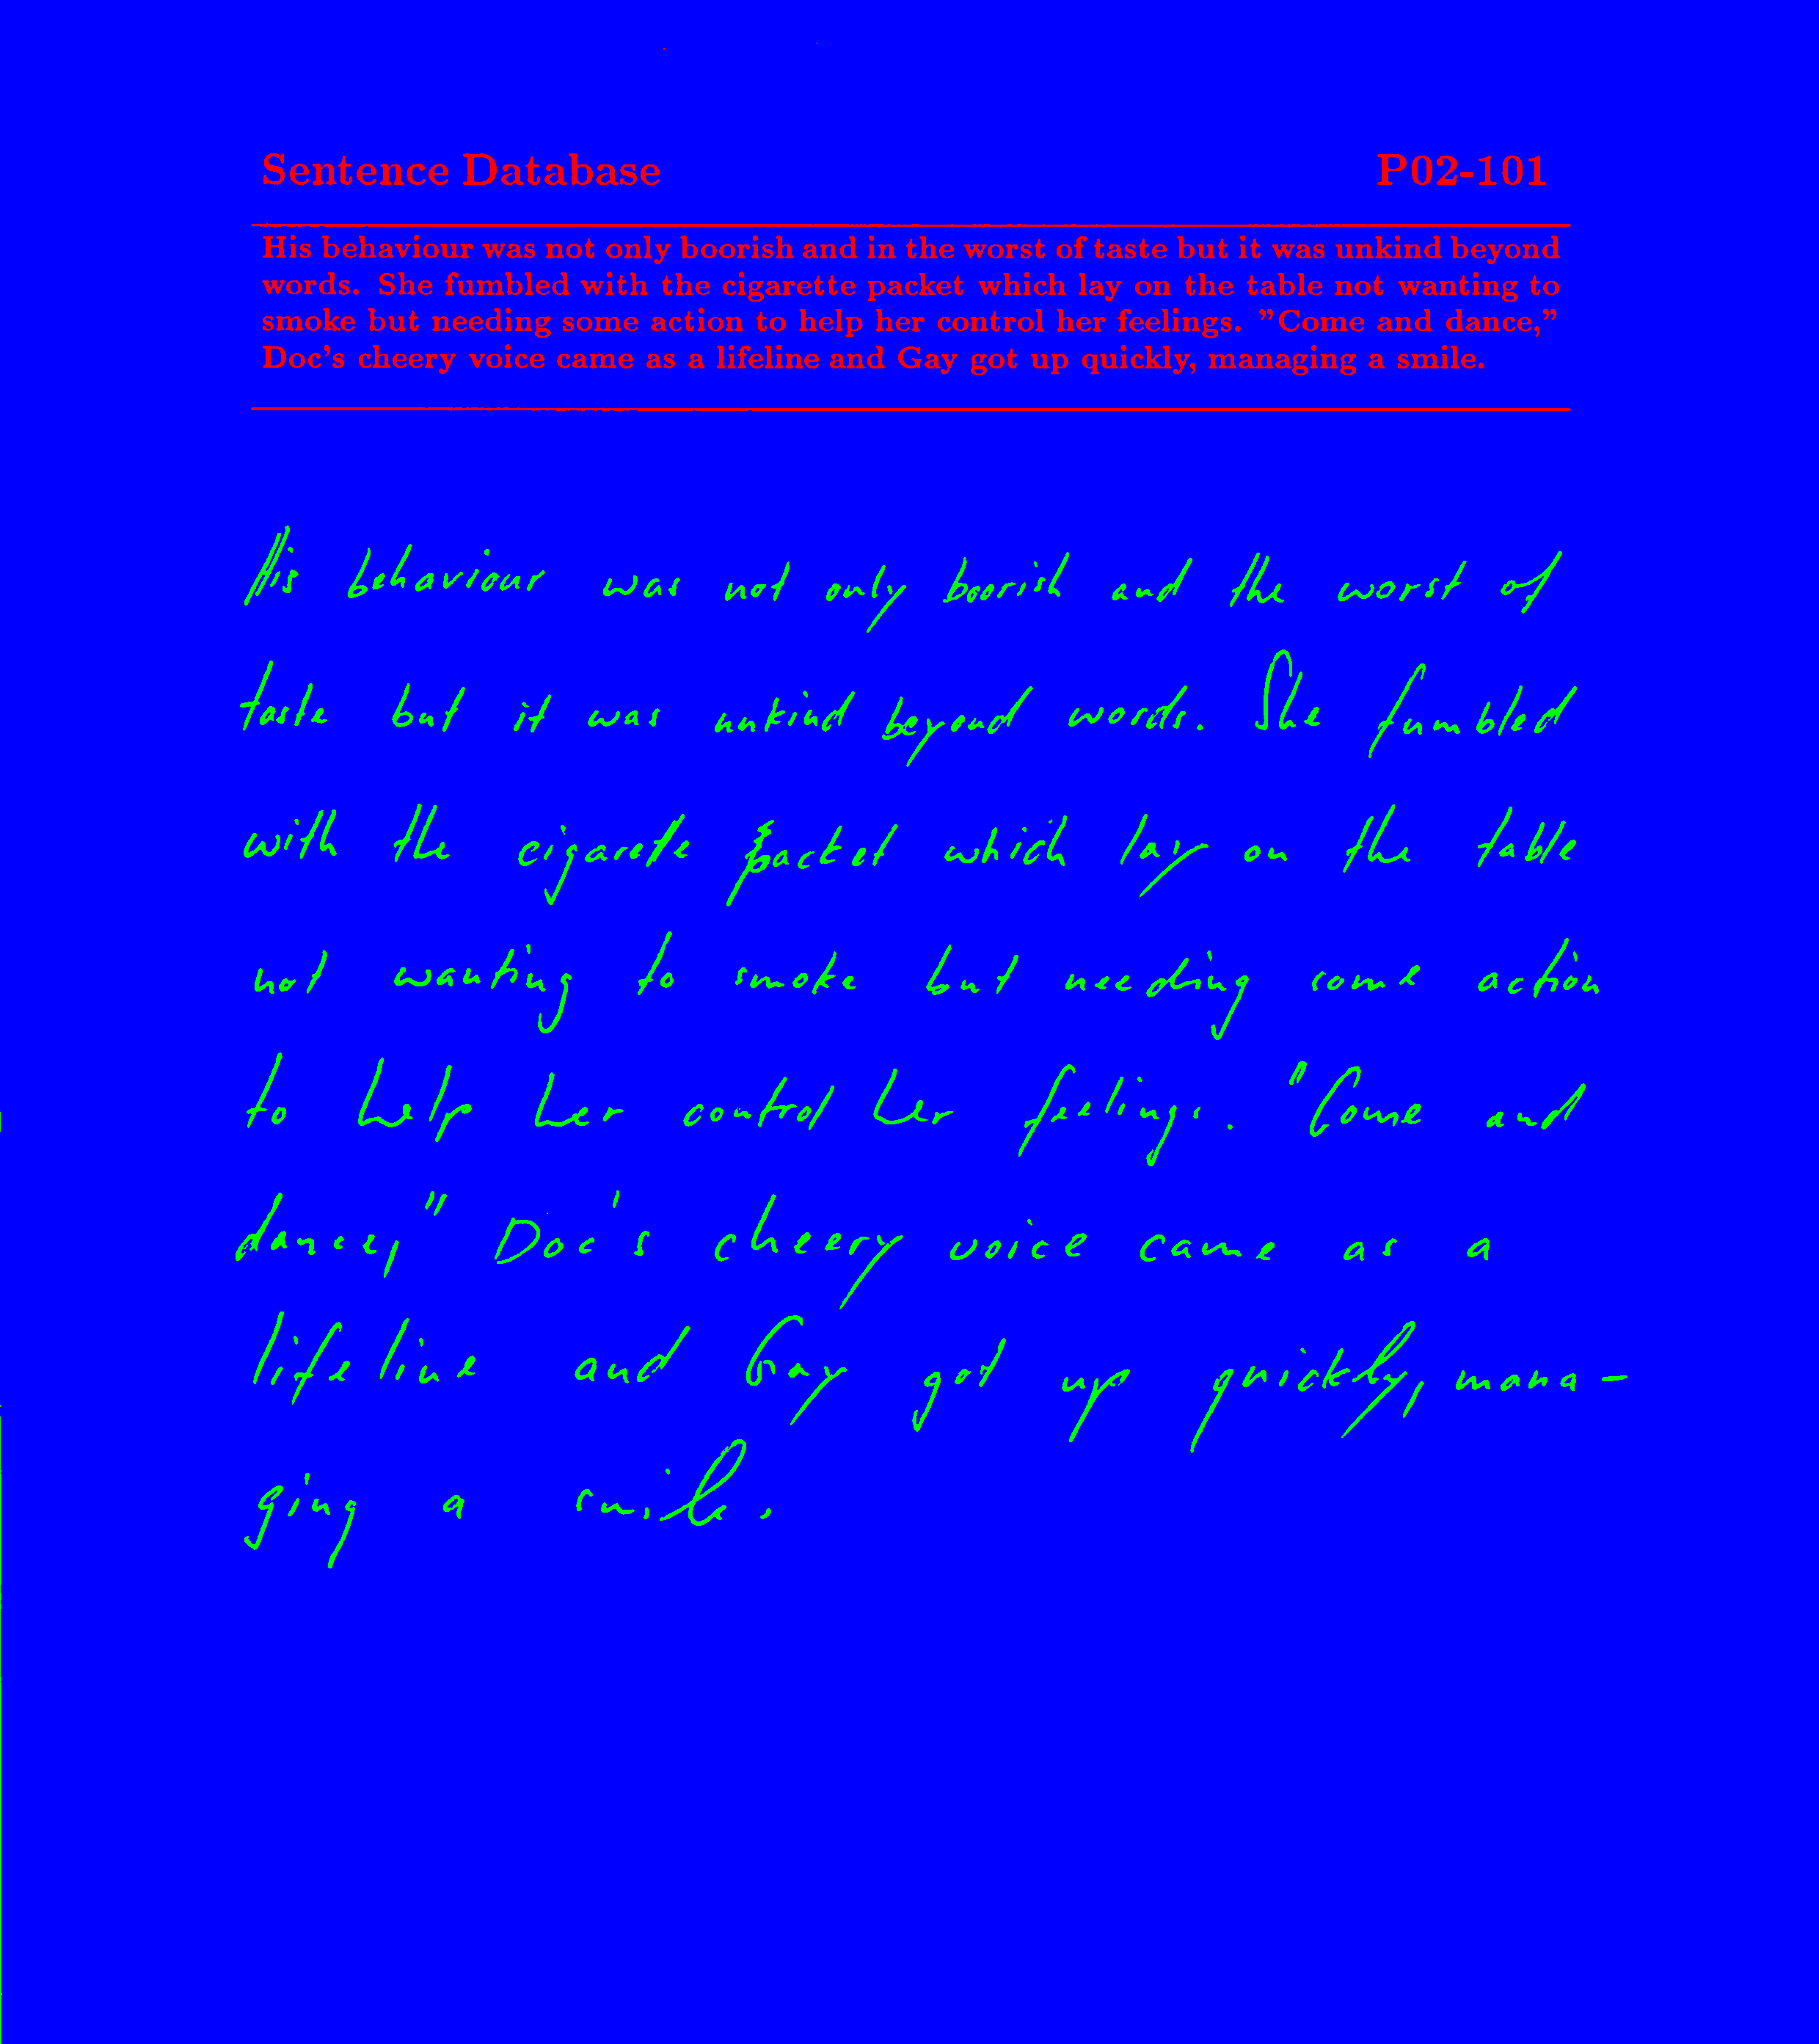 Sentence Database P02-101
His behaviour was not only boorish and in the worst of taste but it was unkind beyond
words. She fumbled with the cigarette packet which lay on the table not wanting to
smoke but needing some action to help her control her feelings. "Come and dance,"
Doc's cheery voice came as a lifeline and Gay got up quickly, managing a smile.
His behaviour was not only boorish and the worst of
taste but it was unkind beyond words. She fumbled
with the cigarette packet which lay on the table
not wanting to smoke but needing some action
to help her control her feelings. "Come and
dance," Doc's cheery voice came as a
lifeline and Gay got up quickly, mana-
ging a smile.